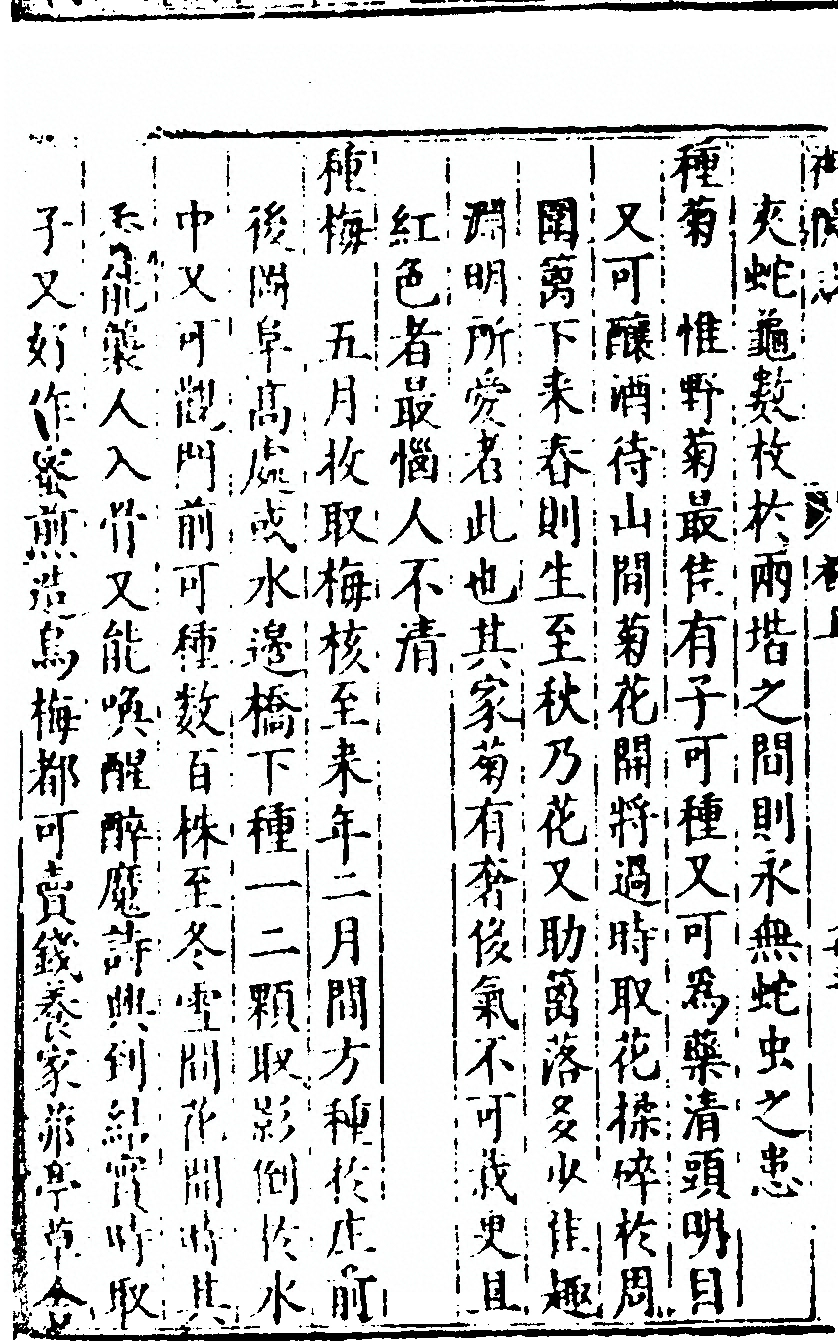 夾蛇龜數枚於兩堦之間則永無蛇虫之患
種菊　惟野菊最佳有子可種又可為藥清頭明目
又可釀酒待山間菊花開將過時取花揉碎於周
圍籬下来春則生至秋乃花又助籬落多少佳趣
淵明所愛者此也其家菊有奢侈氣不可栽史且
紅色者最惱人不清
種梅　五月收取梅核至来年二月間方種於庄前
後岡阜高處或水邊橋下種一二顆取影倒於水
中又可觀門前可種数百株至冬雪間花開時其
香能襲人入骨又能喚醒醉魔詩興到結實時取
子又好作蜜煎造烏梅都可賣錢養家茅亭草舍